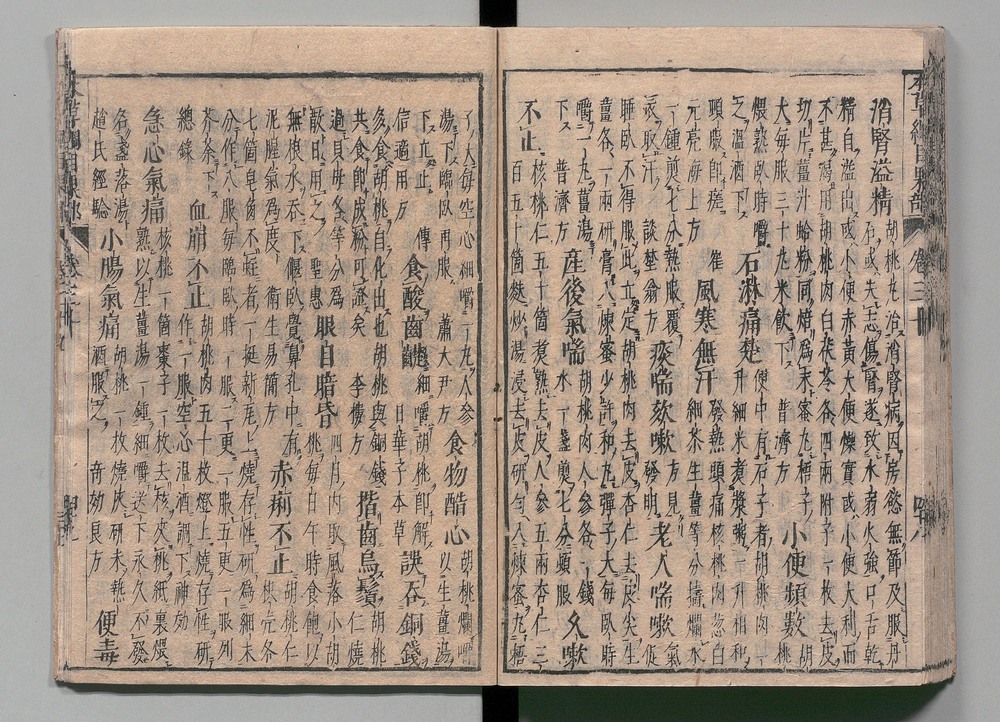 消腎溢精 胡桃丸治消腎病因房慾無節及服丹
石或失志傷腎遂致水弱火強口舌乾
精自溢出或小便赤黃大便燥實或小便大利而
不甚渴用胡桃肉白茯苓各四兩附子一枚去皮
切片薑汁蛤粉同焙為末蜜丸梧子大每服三十丸米飲下普濟方
小便頻數 胡桃
煨熟臥時嚼之溫酒下
石淋痛楚 便中有石子者胡桃肉一升細米煮漿粥一升相和
頓服即瘥 崔元亮海上方
風寒無汗 發熱頭痛核桃肉蔥白細茶生薑等分擣爛水
一鍾煎七分熱服覆衣取汗 談埜翁方
痰喘欬嗽 方見發明
老人喘嗽 氣促
睡臥不得服此立定胡桃肉去皮杏仁去皮尖生
薑各一兩研膏入煉蜜少許和丸彈子大每臥時
嚼一丸薑湯下 普濟方
產後氣喘 胡桃肉人參各一錢水一盞煎七分頓服
久嗽不止 核桃仁五十箇煮熟去皮人參五兩杏仁三
百五十箇麩炒湯浸去皮研勻入煉蜜丸梧
子大每空心細嚼一丸人參
湯下臨臥再服 蕭大尹方
食物醋心 胡桃爛嚼以生薑湯
下立止 傳信適用方
食酸齒齼 細嚼胡桃即解 日華子本草
誤吞銅錢
多食胡桃自化出也胡桃與銅錢
共食即成粉可證矣 李樓方
揩齒烏鬚 胡桃仁燒
過貝母各等分為散日用之 聖惠
眼目暗昏 四月內取風落小胡桃每日午時食飽以
無根水吞下偃臥覺鼻孔中有
泥腥氣為度 衛生易簡方
赤痢不止 胡桃仁枳壳各
七箇皂角不蛀者一挺新瓦上燒存性研為細末
分作八服每臨臥時一服二更一服五更一服荊
芥茶下 總錄
血崩不止 胡桃肉五十枚燈上燒存性研作一服空心溫酒調下神效
急心氣痛 核桃一箇棗子一枚去核夾桃紙裹煨
熟以生薑湯一鍾細嚼送下永久不發
名盞落湯 趙氏經驗
小腸氣痛 胡桃一枚燒灰研末熱酒服之 奇効良方
便毒